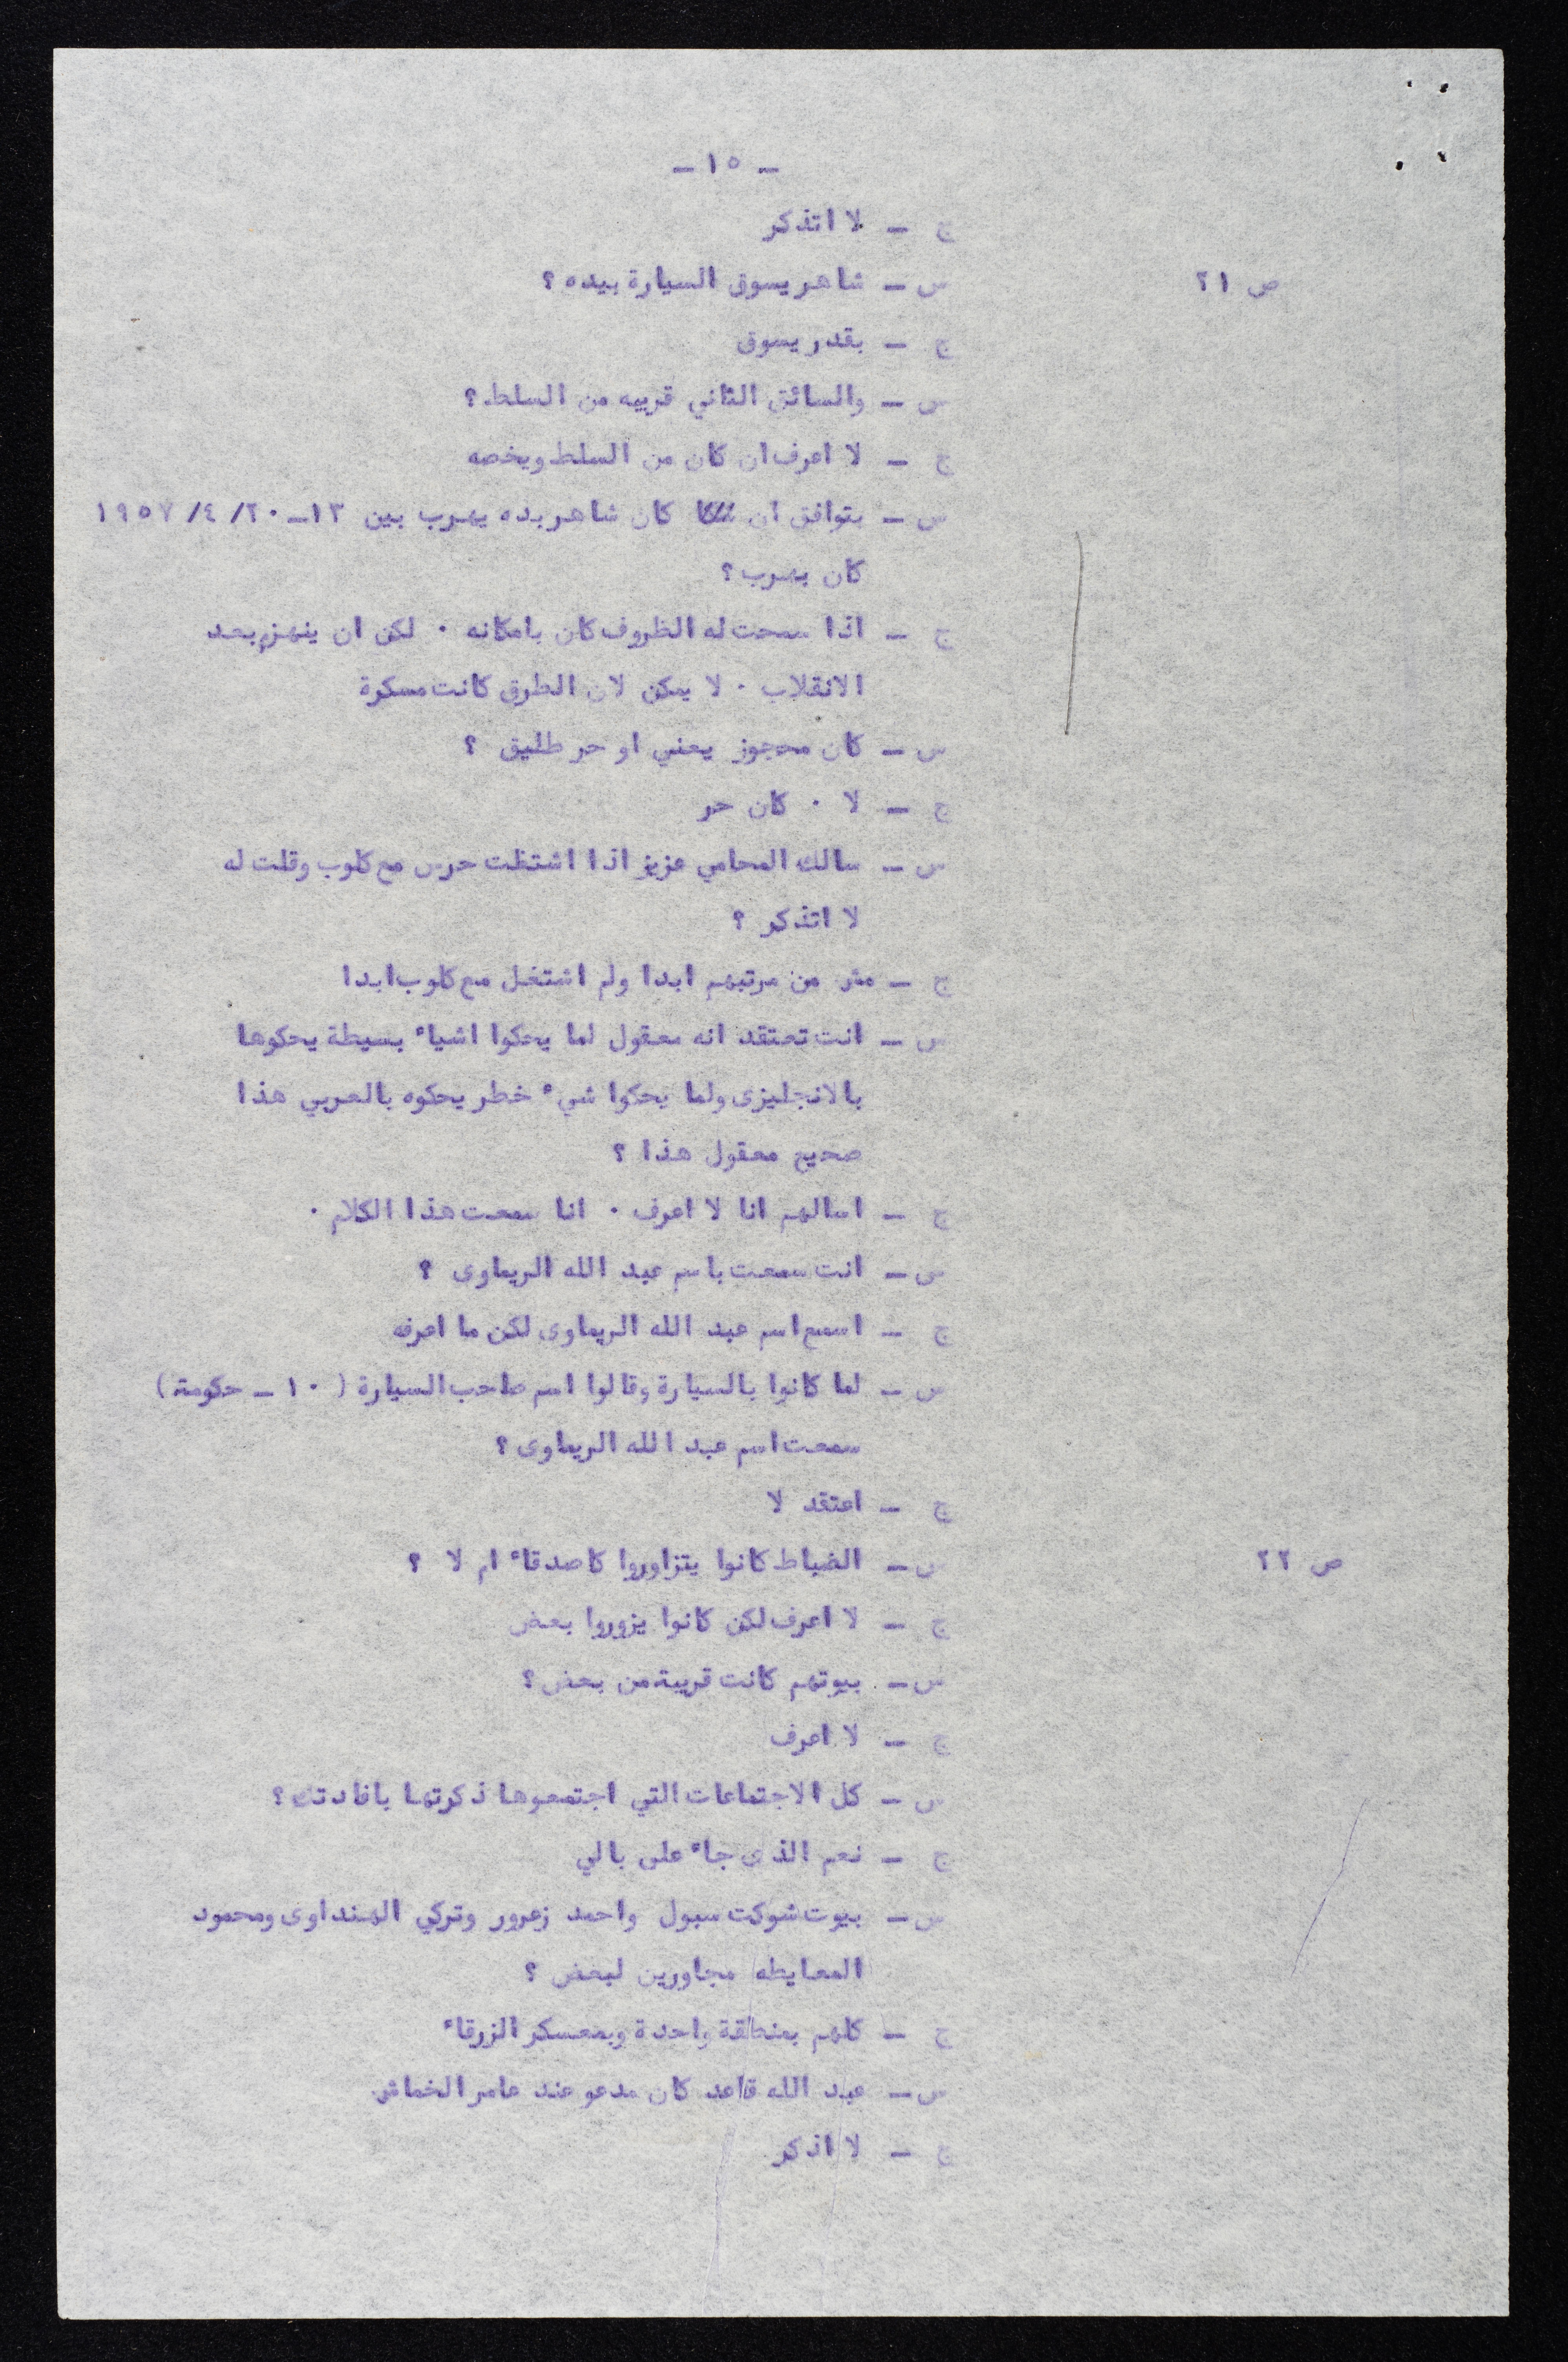 - ١٥ -
ج - لا اتذكر
ص ٢١ س - شاهر يسوق السيارة بيده ؟
ج - بقدر يسوق
س - والسائق الثاني قريبه من السلط ؟
ج - لا اعرف ان كان من السلط ويخصه
س - بتوافق ان كان شاهر بده يهرب بين ١٣-٢٠/ ٤/ ١٩٥٧
كان يهرب ؟
ج - اذا سمحت له الظروف كان بامكانه ٠ لكن ان ينهزم بعد
الانقلاب ٠ لا يمكن لان الطرق كانت مسكرة
س - كان محجوز يعني او حر طليق ؟
ج - لا ٠ كان حر
س - سالك المحامي عزيز اذا اشتغلت حرس مع كلوب وقلت له
لا اتذكر ؟
ج - مش من مرتبهم ابدا ولم اشتغل مع كلوب ابدا
س - انت تعتقد انه معقول لما يحكوا اشياء بسيطة يحكوها
بالانجليزى ولما يحكوا شيء خطر يحكوه بالعربي هذا
صحيح معقول هذا ؟
ج - اسالهم انا لا اعرف ٠ انا سمعت هذا الكلام ٠
س - انت سمعت باسم عبد الله الريماوى ؟
ج - اسمع اسم عبد الله الريماوى لكن ما اعرفه
س - لما كانوا بالسيارة وقالوا اسم صاحب السيارة ( ١٠ - حكومة )
سمعت اسم عبد الله الريماوى ؟
ج - اعتقد لا
ص ٢٢ س - الضباط كانوا يتزاوروا كاصدقاء ام لا ؟
ج - لا اعرف لكن كانوا يزوروا بعض
س - بيوتهم كانت قريبة من بعض ؟
ج - لا اعرف
س - كل الاجتماعات التي اجتمعوها ذكرتها بافادتك ؟
ج - نعم الذى جاء على بالي
س - بيوت شوكت سبول واحمد زعرور وتركي الهنداوى ومحمود
المعايطه مجاورين لبعض ؟
ج - كلهم بمنطقة واحدة وبمعسكر الزرقاء
س - عبد الله قاعد كان مدعو عند عامر الخماش
ج - لا اذكر